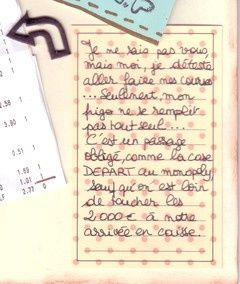 Je ne sais pas vous,
mais moi, je déteste
aller faire mes courses
... Seulement, mon
frigo ne se remplit
pas tout seul...
C'est un passage
obligé, comme la case
DEPART au monopoly,
sauf qu'on est loin
de toucher les
2000€ à notre
arrivée en caisse.
2.58
1.00
0.90
0.51 1
1.71 1
0.54 1
2.77 0